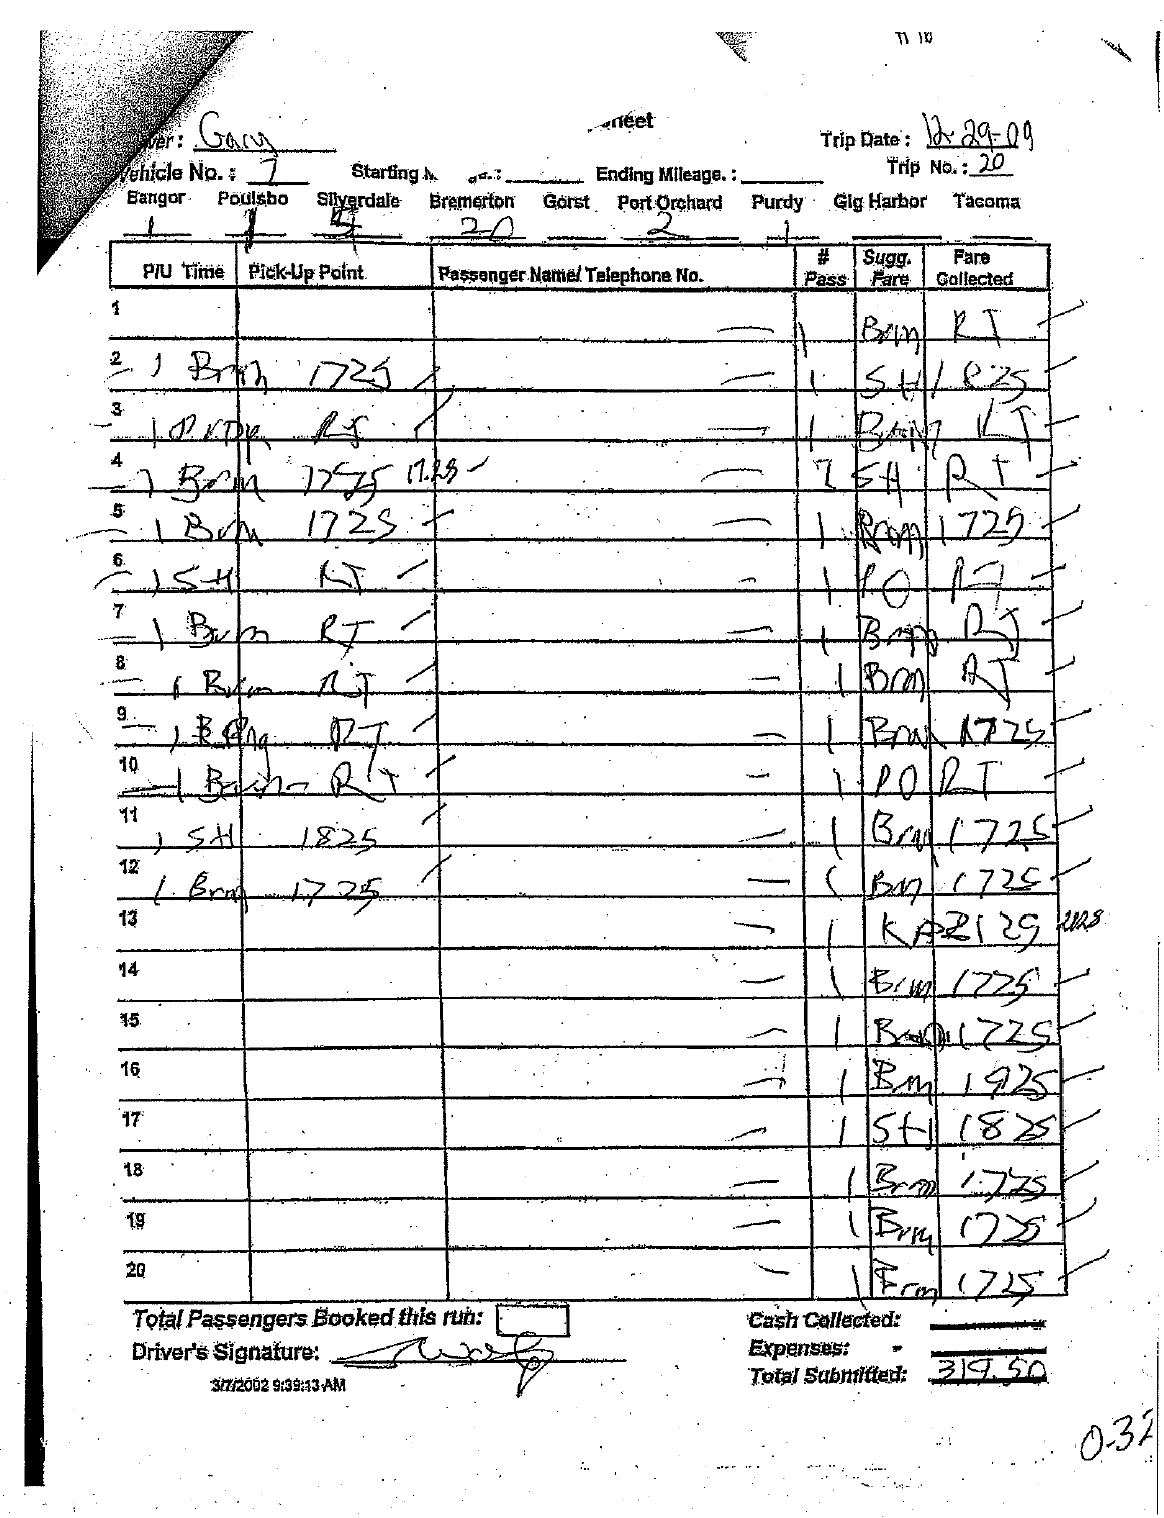 11 10
Driver: Gary Sheet Trip Date: 12-29-09
Vehicle No.: 7 Starting Ending Mileage.: Trip No.: 20
Bangor Poulsbo Silverdale Bremerton Gorst Port Orchard Purdy Gig Harbor Tacoma
1 1 20 2 1
P/U Time Pick-Up Point Passenger Name/ Telephone No. # Pass Sugg. Fare Fare Collected
1 1 Brm RT
2 1 Brm 1725 1 SH 1825
3 1 RT 1 Brm RT
4 1 Brm 1725 17.25 2 SH RT
5 1 Brm 1725 1 Brm 1725
6 1 SH RT 1 PO RT
7 1 Brm RT 1 Brm RT
8 1 Brm RT 1 Brm RT
9 1 RT 1 Brm 1725
10 1 Brm RT 1 PO RT
11 1 SH 1825 1 Brm 1725
12 1 Brm 1725 1 Brm 1725
13 1 2125
14 1 Brm 1725
15 1 Brm 1725
16 1 Brm 1925
17 1 SH 1825
18 1 Brm 1725
19 1 Brm 1725
20 1 Brm 1725
Total Passengers Booked this run: Cash Collected:
Driver's Signature: Expenses: -
3/7/2002 9:39:13 AM Total Submitted: 319.50
0-32